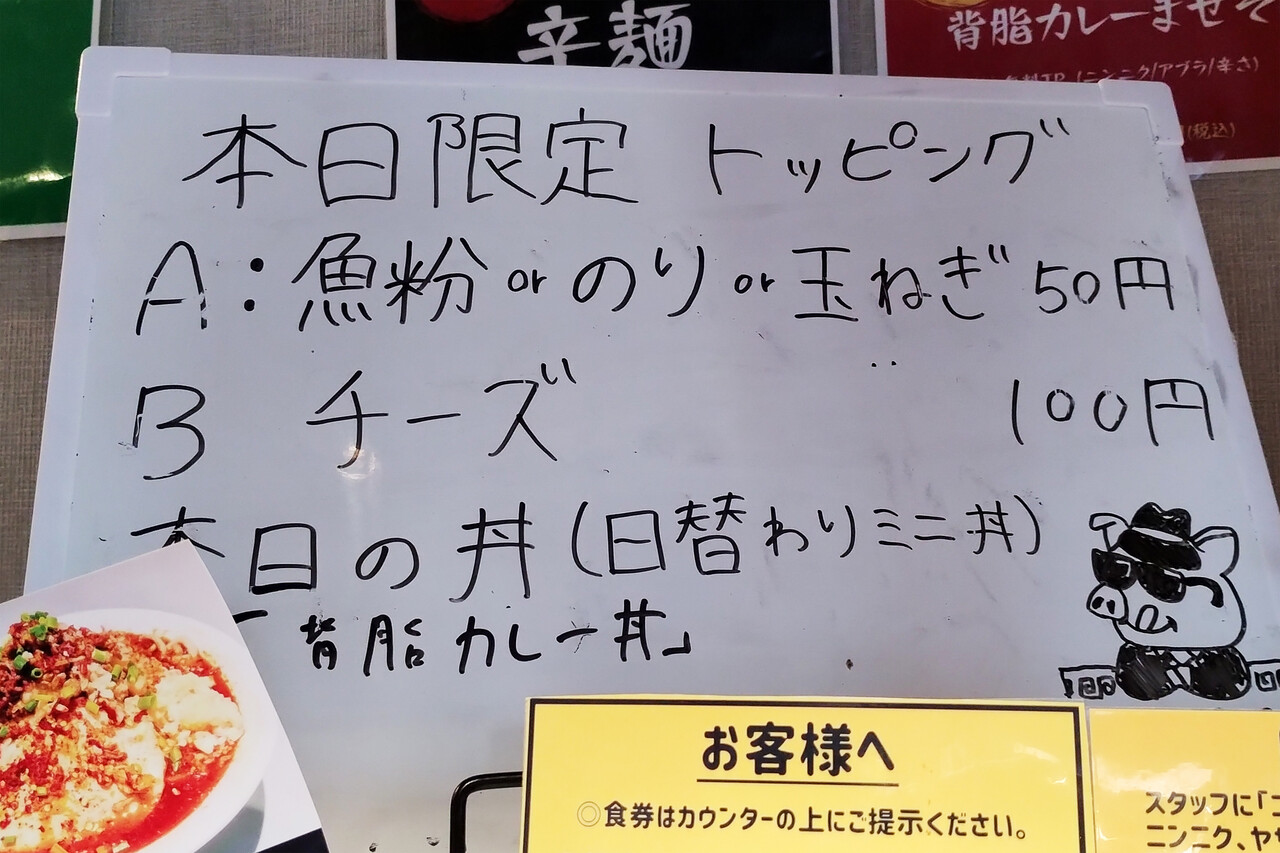 辛麺
背脂カレーまぜそ
(ニンニク/アブラ/辛さ)
(税込)
本日限定 トッピング
A:魚粉 or のり or 玉ねぎ 50円
B チーズ 100円
本日の丼(日替わりミニ丼)
「背脂カレー丼」
お客様へ
◎食券はカウンターの上にご提示ください。
スタッフに「ニ
ニンニク、ヤサ